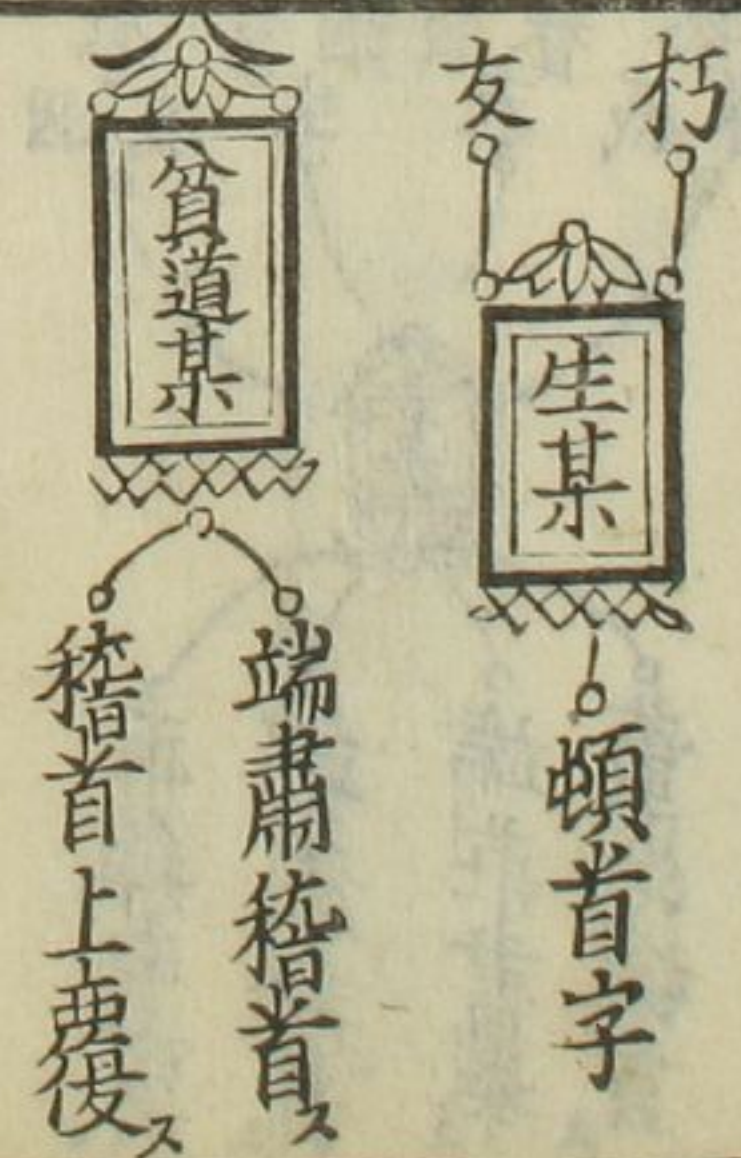 朽
友
生某
頓首字
貧道某
端肅稽首ス
稽首上慶復ス